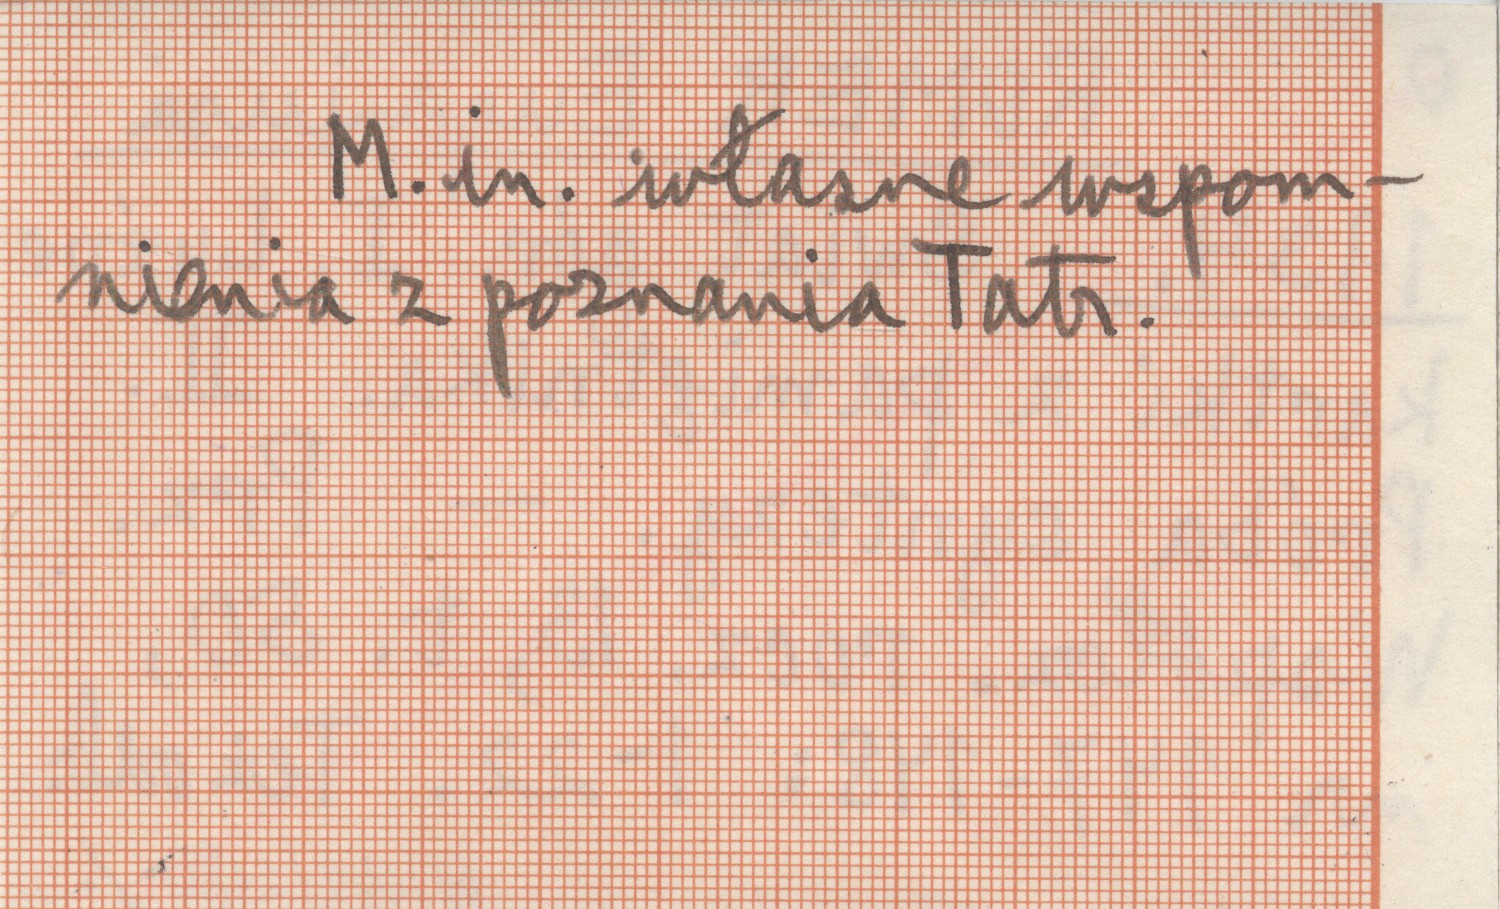 M. in. własne wspom-
nienia z poznania Tatr.